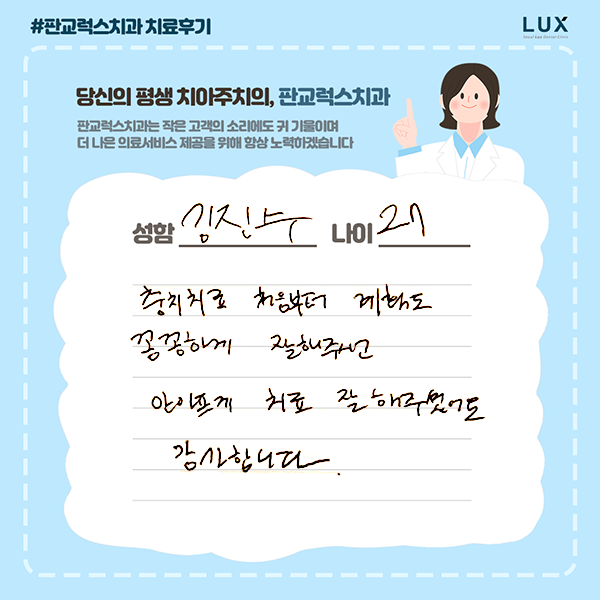 #판교럭스치과 치료후기
LUX
Seoul Lux Dental Clinic
당신의 평생 치아주치의, 판교럭스치과
판교럭스치과는 작은 고객의 소리에도 귀 기울이며
더 나은 의료서비스 제공을 위해 항상 노력하겠습니다
성함 김진수 나이 27
충치치료 처음부터 계획도
꼼꼼하게 잘해주시고
안아프게 치료 잘 해주셨어도
감사합니다.